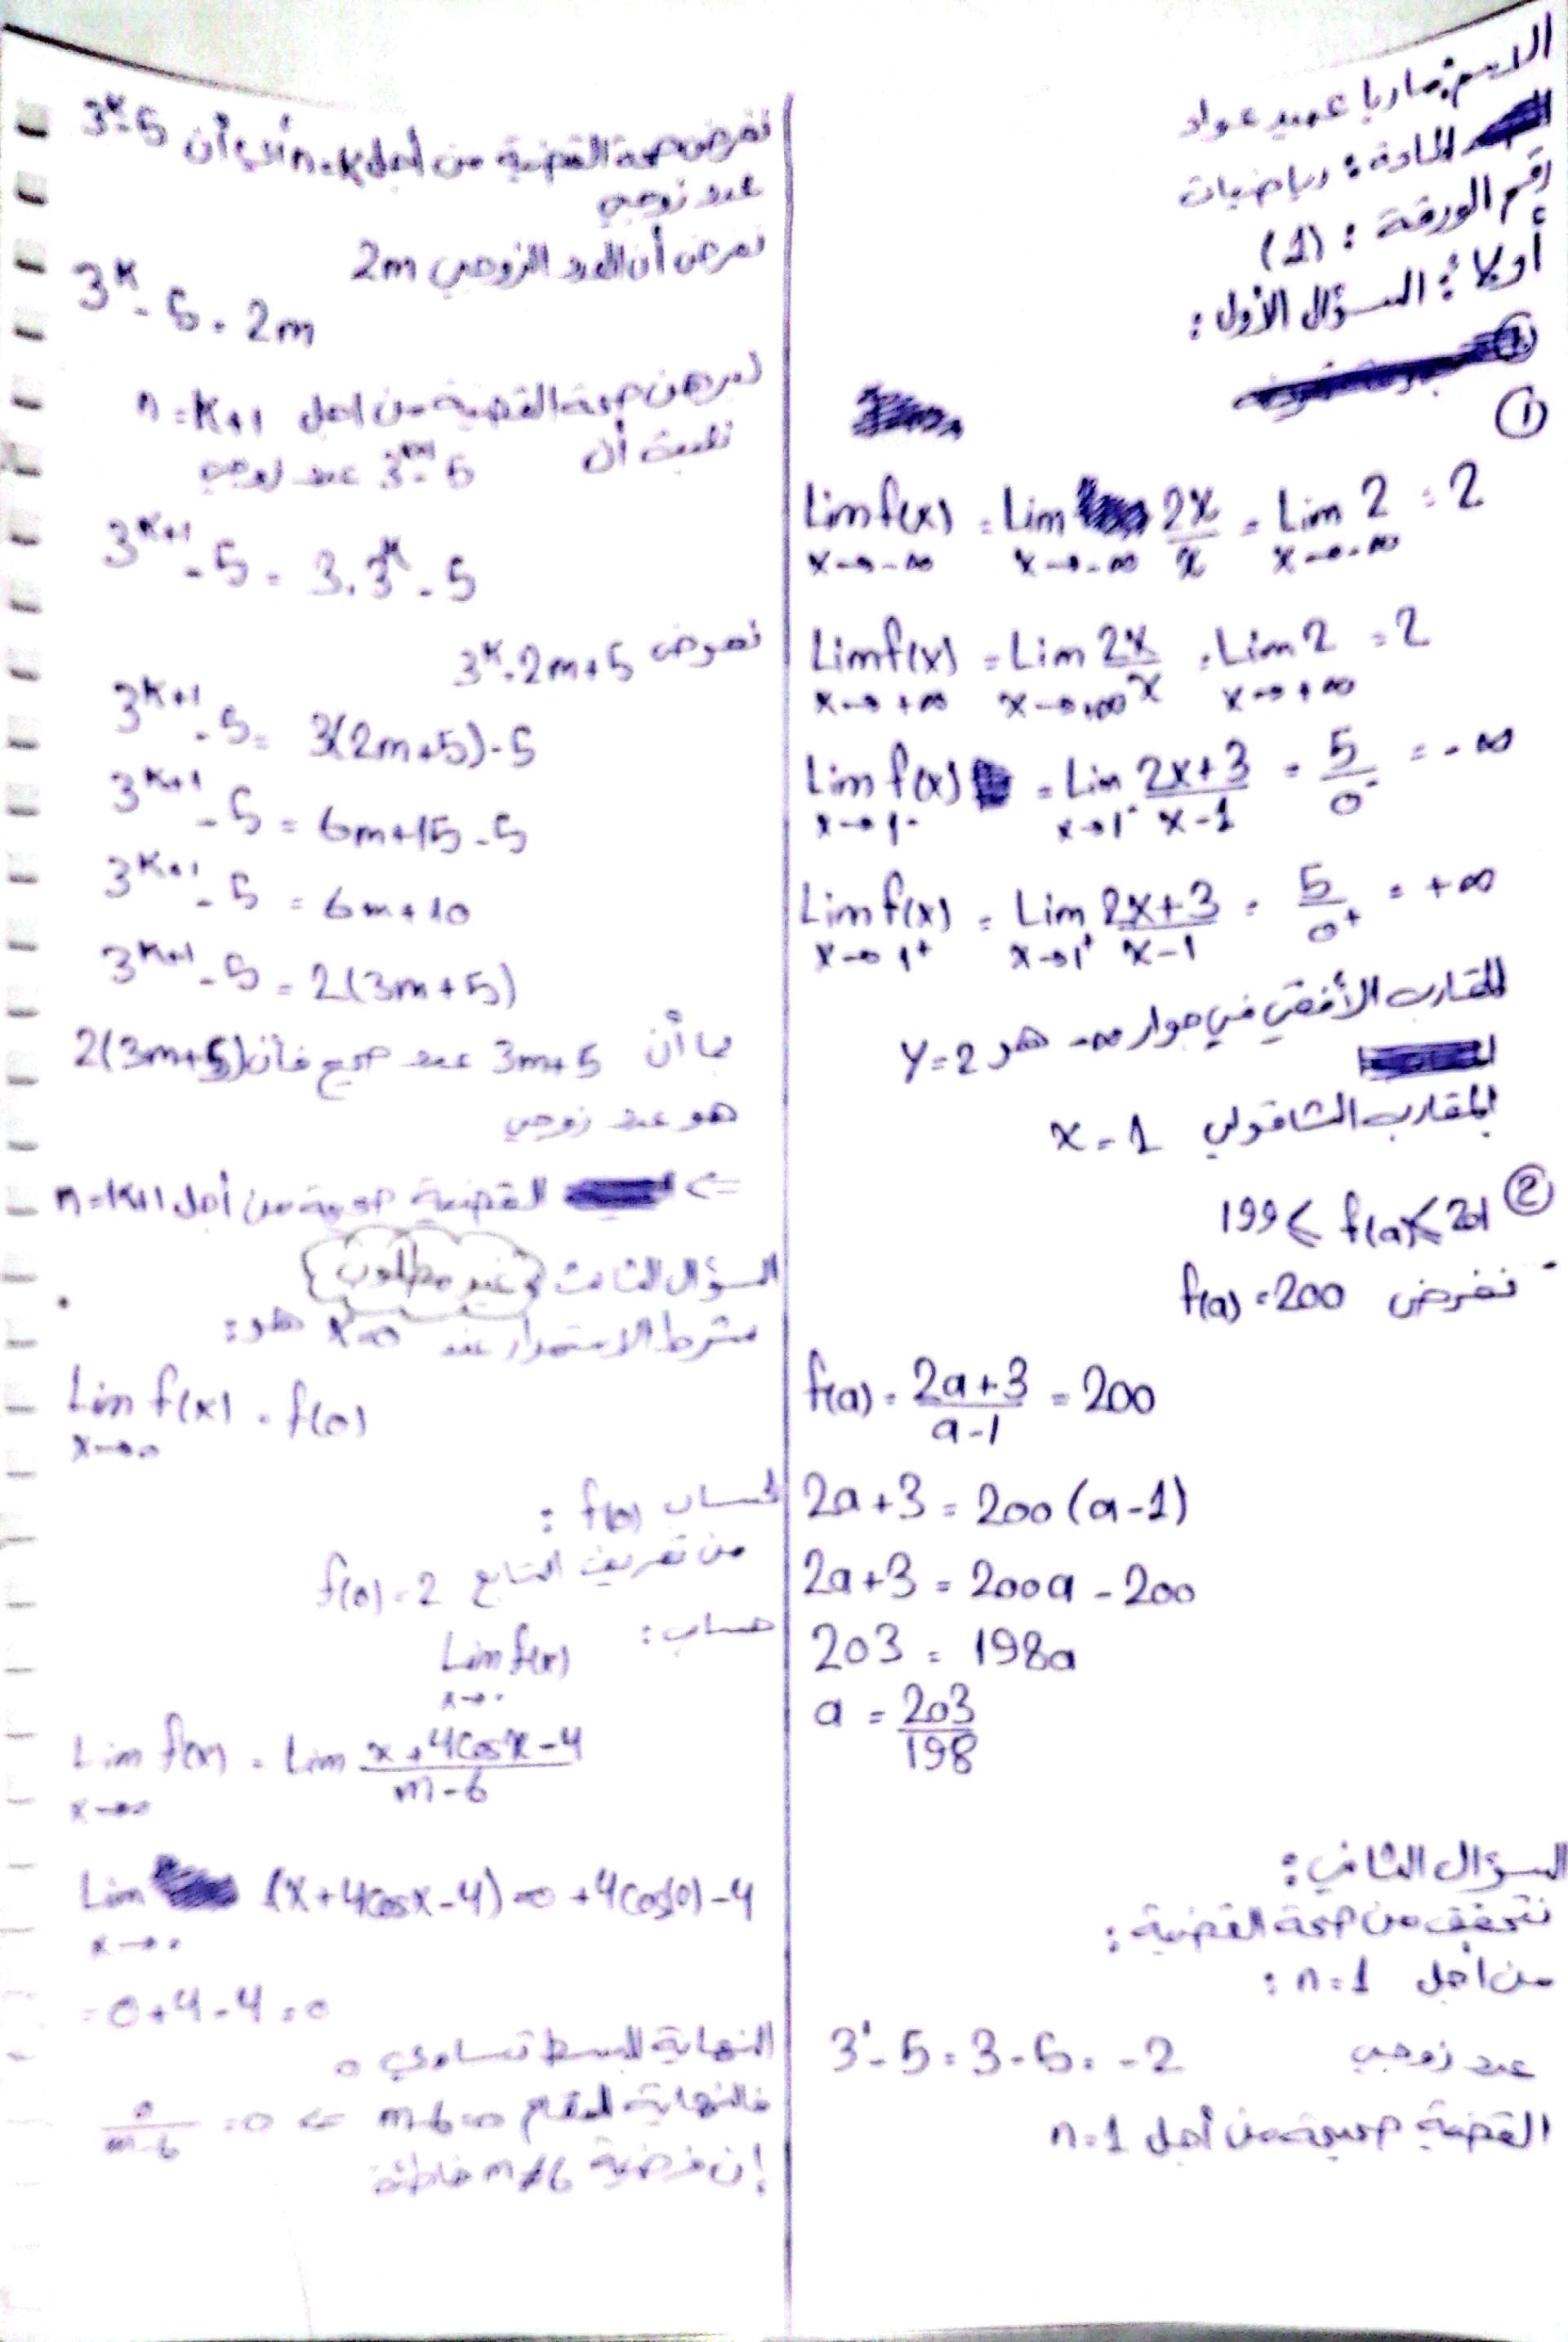 الاسم: ماريا عميد عواد
المادة: رياضيات
رقم الورقة: (1)
أولاً: السؤال الأول:
①
Lim f(x) = Lim 2x/x = Lim 2 = 2
x→-∞ x→-∞ x→-∞
Lim f(x) = Lim 2x/x = Lim 2 = 2
x→+∞ x→+∞ x→+∞
Lim f(x) = Lim 2x+3/x-1 = 5/0⁻ = -∞
x→1⁻ x→1⁻
Lim f(x) = Lim 2x+3/x-1 = 5/0⁺ = +∞
x→1⁺ x→1⁺
المقارب الأفقي في جوار -∞ هو y=2
المقارب الشاقولي x=1
② 199 ≤ f(a) ≤ 201
- نفرض f(a) = 200
f(a) = 2a+3/a-1 = 200
2a+3 = 200(a-1)
2a+3 = 200a - 200
203 = 198a
a = 203/198
السؤال الثاني:
نتحقق من صحة القضية:
من أجل n=1:
3¹-5 = 3-5 = -2 عدد زوجي
القضية صحيحة من أجل n=1
نفرض صحة القضية من أجل n=k أي أن 3ᵏ-5
عدد زوجي
نفرض أن العدد الزوجي 2m
3ᵏ - 5 = 2m
لنبرهن صحة القضية من اجل n=k+1
نثبت أن 3ᵏ⁺¹-5 عدد زوجي
3ᵏ⁺¹ - 5 = 3.3ᵏ - 5
نعوض 3ᵏ=2m+5
3ᵏ⁺¹ - 5 = 3(2m+5)-5
3ᵏ⁺¹ - 5 = 6m+15-5
3ᵏ⁺¹ - 5 = 6m+10
3ᵏ⁺¹ - 5 = 2(3m+5)
بما أن 3m+5 عدد صحيح فأن 2(3m+5)
هو عدد زوجي
⇐ القضية صحيحة من أجل n=k+1
السؤال الثالث غير مطلوب
شرط الاستمرار عند x=0 هو:
Lim f(x) = f(0)
x→0
لحساب f(0):
من تعريف التابع f(0)=2
حساب: Lim f(x)
x→0
Lim f(x) = Lim x+4cosx-4/m-6
x→0
Lim (x+4cosx-4)=0+4cos(0)-4
x→0
=0+4-4=0
النهاية للبسط تساوي 0
فالنهاية للمقام m-6=0 ⇐ 0/m-6 =0
إن فرضية m≠6 خاطئة